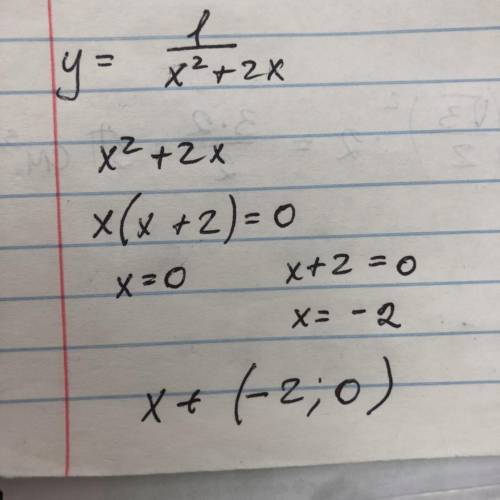 y = 1/(x² + 2x)
x² + 2x
x(x + 2) = 0
x = 0    x + 2 = 0
x = -2
x + (-2; 0)